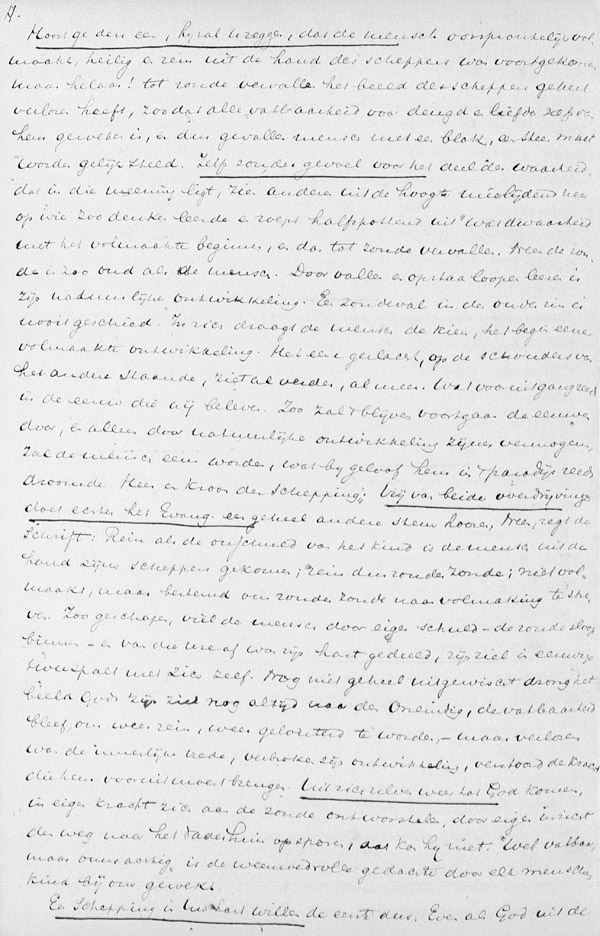 17.
Hoort ge den een, hij zal u zeggen, dat de mensch oorspronkelijk vol-
maakt, heilig en rein uit de hand des scheppers was voortgekomen
maar helaas! tot zonde vervallen het beeld des scheppers geheel
verloren heeft, zoodat alle vatbaarheid voor deugd en liefde zelf van
hem geweken is, en dus gevallen mensch met een blok, een steen moet
worden gelijk gesteld. Zelf zonder gevoel voor het deel der waarheid,
dat in die meening ligt, zien anderen uit de hoogte medelijdend neer
op wie zoo denken leerde en roept halfspottend uit "wat dwaasheid
met het volmaakte beginnen, en dan tot zonde vervallen. Neen de zon-
de is zoo oud als de mensch. Door vallen en opstaan loopen leeren is
zijn natuurlijke ontwikkeling. Een zondeval in den ouden zin is
nooit geschied. In zich draagt de mensch de kiem, het begin eener
volmaakte ontwikkeling. Het eene geslacht, op de schouders van
het andere staande, ziet al verder, al meer. Wat vooruitgang reeds
in de eeuw die wij beleven. Zoo zal 't blijven voortgaan de eeuwen
door, en alleen door natuurlijke ontwikkeling zijner vermogens,
zal de mensch eens worden, wat bij geloof hem in 't paradijs reeds
droomde Heer en kroon der schepping". Vrij van beide overdrijvingen
doet echter het Evang. een geheel andere stem hooren, Neen, zegt de
Schrift: Rein als de onschuld van het kind is de mensch uit de
hand zijns scheppers gekomen; rein dus zonder zonde; niet vol-
maakt, maar bestemd om zonder zonde naar volmaking te stre-
ven. Zoo geschapen, viel de mensch door eigen schuld - de zonde sloop
binnen - en van die ure af was zijn hart gedeeld, zijn ziel in eeuwig
tweespalt met zich zelf. Nog niet geheel uitgewischt drong het
beeld Gods zijn ziel nog altijd naar den Oneindig, de vatbaarheid
bleef, om weer rein, weer gelouterd te worden, - maar verloren
was de innerlijke vrede, verbroken zijn ontwikkeling, verstoord de kracht
die hem vooruit moest brengen. Uit zich zelven weer tot God komen,
in eigen kracht zich aan de zonde ontworstelen, door eigen inzicht
den weg naar het Vaderhuis opsporen, dat kon hij niet. "Wel vatbaar,
maar onmachtig" is de weemoedvolle gedachte door elk menschen-
kind bij ons gewekt.
Een Schepping in uw hart willen de eerste dus. Even als God uit de